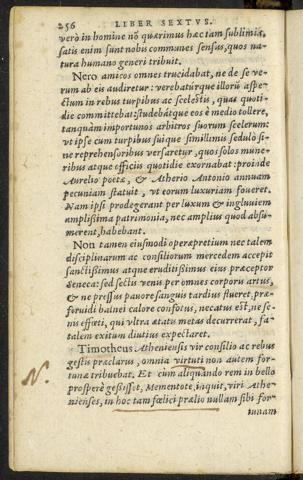 256 LIBER SEXTVS.
verò in homine nõ quærimus hæc tam sublimia,
satis enim sunt nobis communes sensus, quos na-
tura humano generi tribuit.
Nero amicos omnes trucidabat, ne de se ve-
rum ab eis audiretur: verebatúrque illorũ aspe-
ctum in rebus turpibus ac scelestis, quas quoti-
die committebat: studebátque eos è medio tollere,
tanquàm importunos arbitros suorum scelerum:
vt ipse cum turpibus suíque simillimis sedulò si-
ne reprehensoribus versaretur, quos solos mune-
ribus atque officiis quotidie exornabat: proinde
Aurelio poetæ, & Atherio Antonio annuam
pecuniam statuit, vt eorum luxuriam foueret.
Nam ipsi prodegerant per luxum & ingluuiem
amplissima patrimonia, nec amplius quod absu-
merent, habebant.
Non tamen eiusmodi operæpretium nec talem
disciplinarum ac consiliorum mercedem accepit
sanctissimus atque eruditissimus eius præceptor
Seneca: sed sectis venis per omnes corporis artus,
& ne pressus pauore sanguis tardius flueret, præ-
feruidi balnei calore confotus, necatus est, ne se-
nis effœti, qui vltra ætatis metas decurrerat, fa-
talem exitum diutius expectaret.
Timotheus Atheniensis vir consilio ac rebus
gestis præclarus, omnia virtuti non autem for-
tunæ tribuebat. Et cum aliquando rem in bello
N. prosperè gessisset, Mementote, inquit, viri Athe-
nienses, in hoc tam fœlici prælio nullam sibi for-
tunam